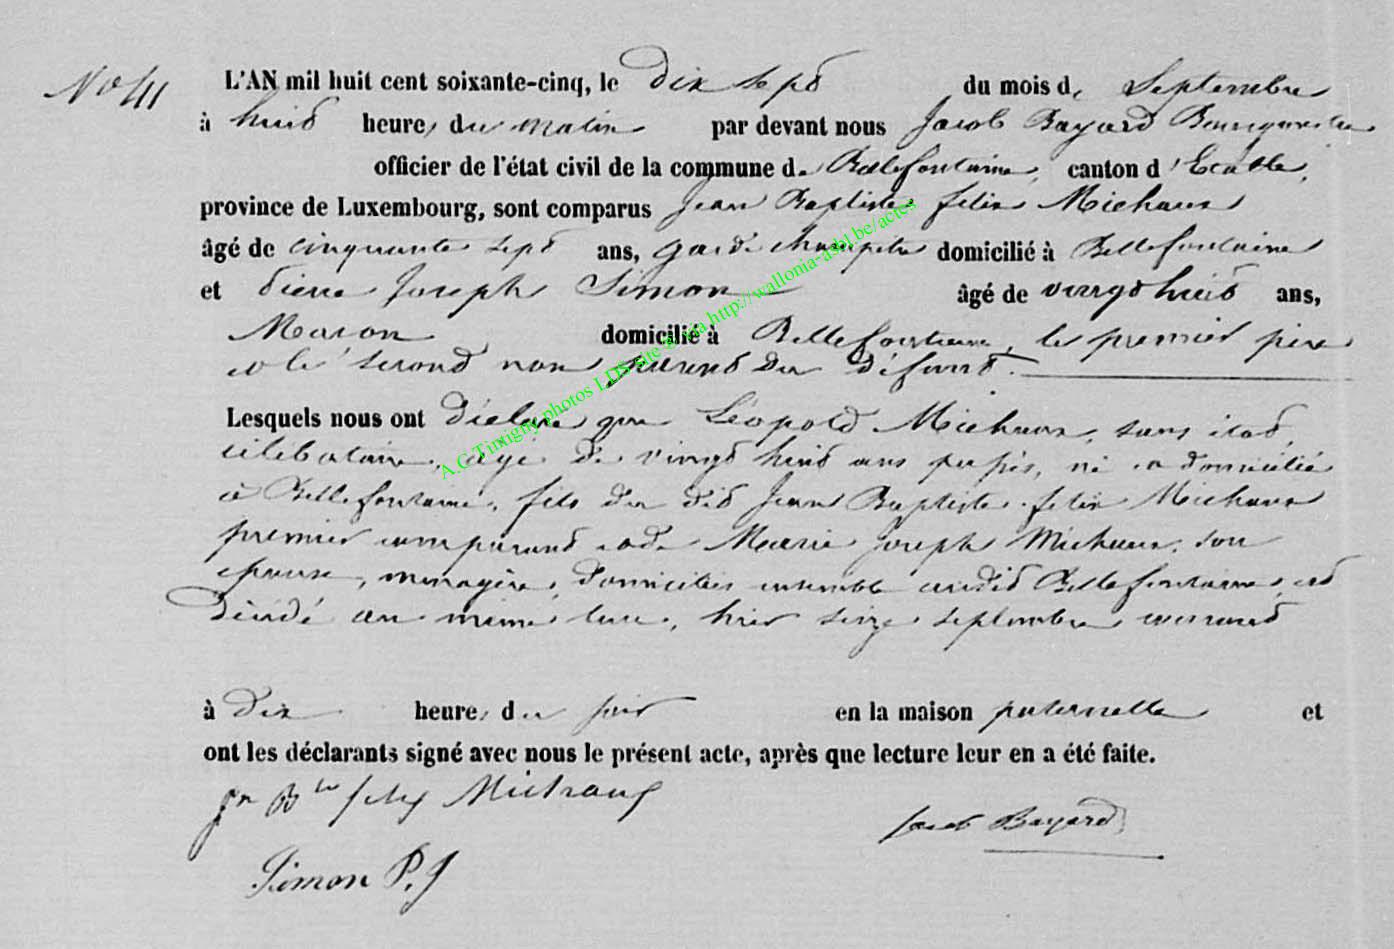 No 41
L'AN mil huit cent soixante-cinq, le dix sept du mois de Septembre
à huit heures du matin par devant nous Jacob Bayard Bourgmestre
officier de l'état civil de la commune de Bellefontaine, canton d'Etalle,
province de Luxembourg, sont comparus Jean Baptiste felix Michaux
âgé de cinquante sept ans, garde champêtre domicilié à Bellefontaine
et Pierre Joseph Simon âgé de vingt huit ans,
Maçon domicilié à Bellefontaine, le premier père
et le second non parent du défunt.
Lesquels nous ont déclaré que Léopold Michaux, sans état,
célibataire, âgé de vingt huit ans passés, né et domicilié
à Bellefontaine, fils du dit Jean Baptiste felix Michaux
premier comparant et de Marie Joseph Michaux, son
épouse, ménagère, domiciliés ensemble audit Bellefontaine, est
décédé au même lieu, hier seize septembre courant
à dix heures du soir en la maison paternelle et
ont les déclarants signé avec nous le présent acte, après que lecture leur en a été faite.
jn Bte felix Michaux
Jacob Bayard
Simon P. J
A.G Tintigny photos LDS site & via http://wallonia-asbl.be/actes